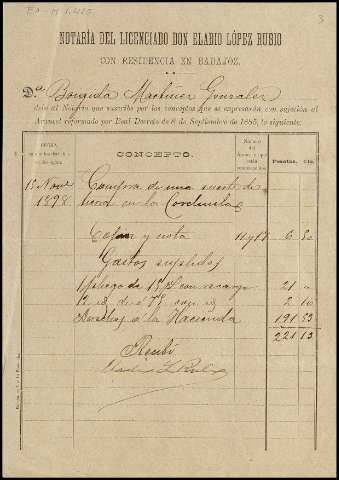 3
NOTARÍA DEL LICENCIADO DON ELADIO LÓPEZ RUBIO
CON RESIDENCIA EN BADAJOZ.
Da. Martínez González
debe al Notario que suscribe por los conceptos que se expresarán con sujeción al
Arancel reformado por Real Decreto de 8 de Septiembre de 1885, lo siguiente:
CONCEPTO. Pesetas. Cts.
15 Novbre Compra de una suerte de
1898 tierra en la Corchuela
Copia y nota 11 y 17 6 50
Gastos suplidos
1 pliego de 15 pt con recargo 21 "
12 id de 2 10
Derechos a la Hacienda 191 53
221 13
Recibí
Eladio L. Rubio